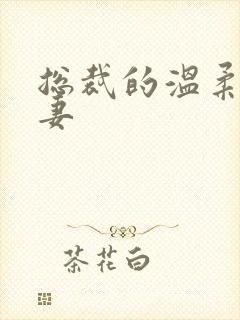 总裁的温柔
妻
茶花白